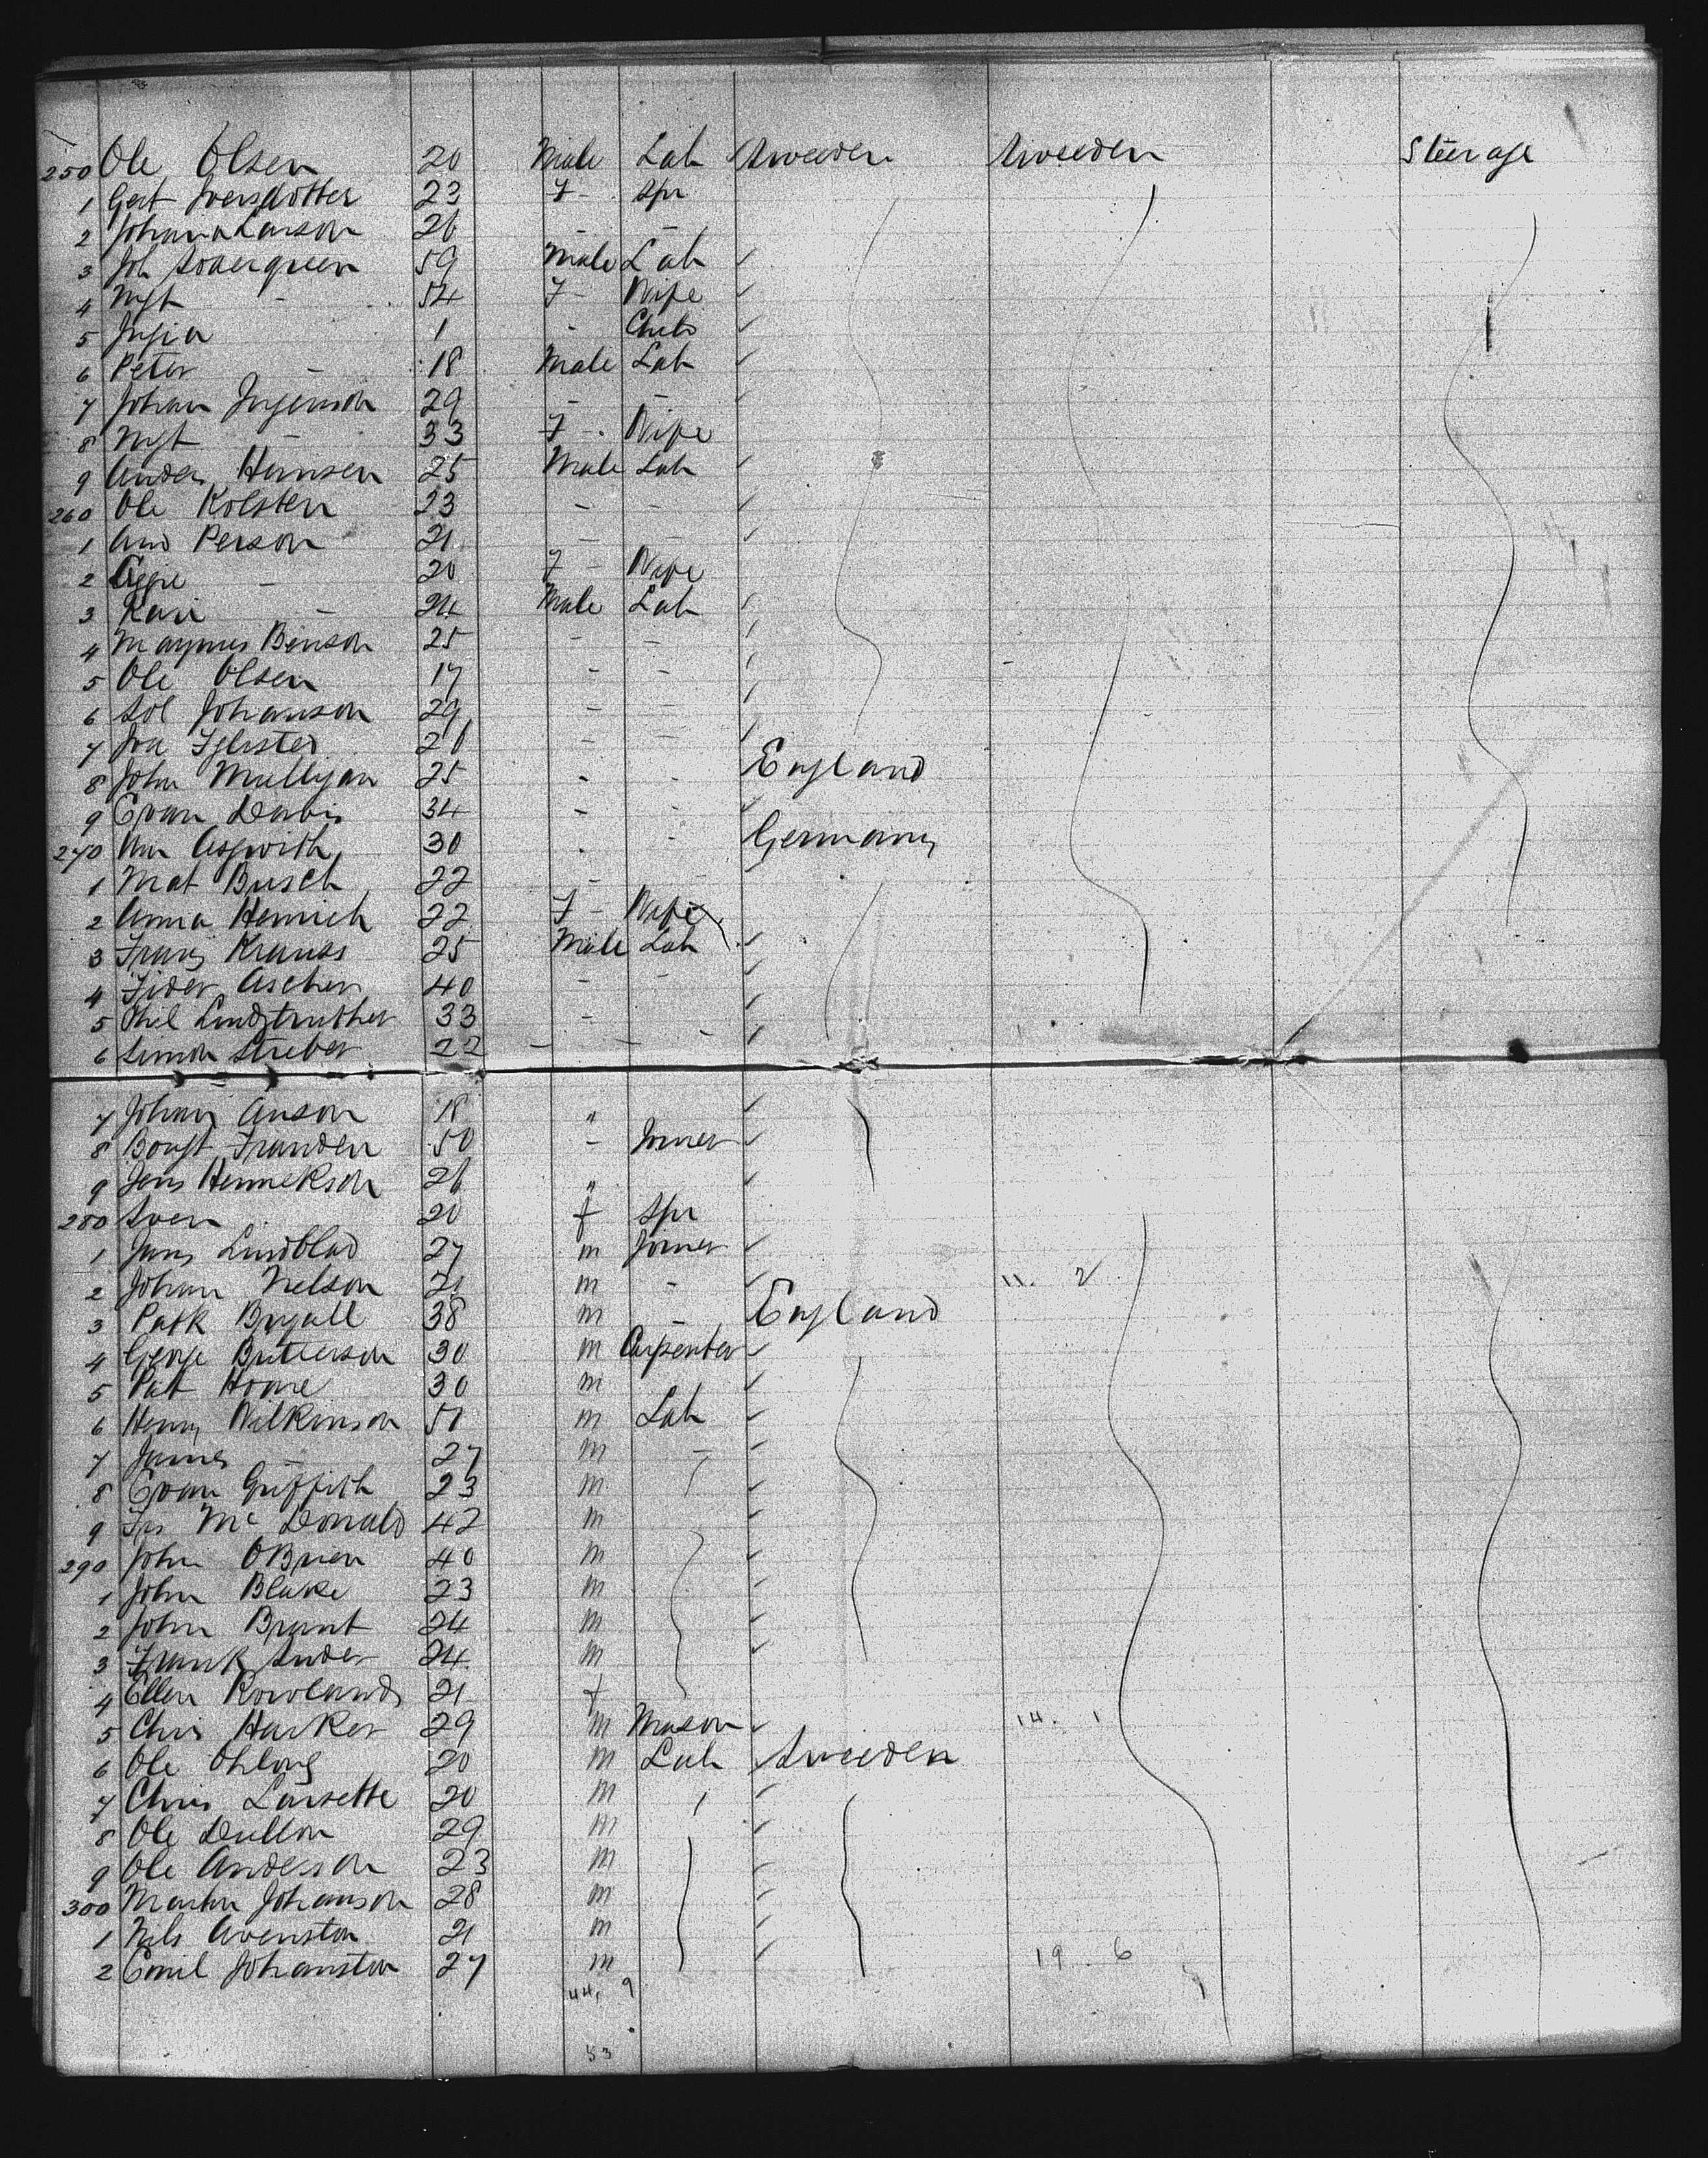 250 Ole Olsen 20 Male Lab Sweeden Sweeden Steerage
1 Gert Iversdotter 23 F - Spr
2 Johana Larson 26 - -
3 Joh Sodergreen 59 Male Lab
4 Mgt - 54 F - Wife
5 Ingia 1 - Child
6 Peter - 18 Male Lab
7 Johan Ingenson 29 - -
8 Mgt - 33 F - Wife
9 Anders Hansen 25 Male Lab
260 Ole Kolsten 23 - -
1 And Person 21 - -
2 - 20 F - Wife
3 Kari - 24 Male Lab
4 Magnus Benson 25 - -
5 Ole Olsen 17 - -
6 Sol Johanson 29 - -
7 20 - -
8 John Mulligan 25 - - England
9 Evan Davis 34 - -
270 Wm 30 - - Germany
1 Mat Busch 22 - -
2 Anna Henrich 22 F - Wife
3 Franz Krauss 25 Male Lab
4 Fider Ascher 40 - -
5 33 -
6 Simon Streber 22 - - -
7 Johan Anson 18 "
8 50 - Joiner
9 26 "
280 Sven 20 f Spr
1 Jans Lindblad 27 m Joiner
2 Johan Nelson 21 m - 11. 2
3 Patk 38 m - England
4 George Butterson 30 m Carpenter
5 Pat 30 m
6 Henry Wilkinson 51 m Lab
7 James - 27 m -
8 Evan Griffith 23 m
9 McDonald 42 m
290 John OBrien 40 m
1 John Blake 23 m
2 John Brant 24 m
3 Frank 24 m
4 Ellen Rowlands 21 f
5 Chris Harker 29 m Mason 14. 1
6 Ole 20 m Lab Sweeden
7 Chris Larsette 20 m
8 Ole 29 m
9 Ole Anderson 23 m
300 Martin Johanson 28 m
1 Nils 21 m
2 Emil Johanston 27 m 19 6
44, 9
53